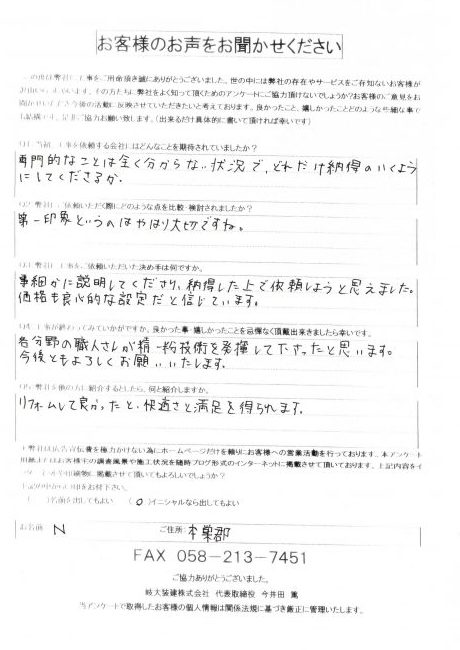 お客様のお声をお聞かせください
工事をご用命頂き誠にありがとうございました。世の中には弊社の存在やサービスをご存知ないお客様が
弊社をよく知って頂くためのアンケートにご協力頂けないでしょうか?お客様のご意見をお
今後の活動に反映させていただきたいと考えております。良かったこと、嬉しかったことどのような些細な事で
ご協力お願い致します。(出来るだけ具体的に書いて頂ければ幸いです)
工事を依頼する会社にはどんなことを期待されていましたか?
専門的なことは全く分からない状況で、どれだけ納得のいくよう
にしてくださるか。
いただく際にどのような点を比較・検討されましたか?
第一印象というのはやはり大切ですね。
ご依頼いただいた決め手は何ですか。
事細かに説明してくださり、納得した上で依頼しようと思えました。
価格も良心的な設定だと信じています。
終わってみていかがですか、良かった事・嬉しかったことを忌憚なく頂戴出来きましたら幸いです。
各分野の職人さんが精一杯技術を発揮して下さったと思います。
今後ともよろしくお願いいたします。
紹介するとしたら、何と紹介しますか。
リフォームして良かったと、快適さと満足を得られます。
費を極力かけない為にホームページだけを頼りにお客様への営業活動を行っております。本アンケート
お客様宅の調査風景や施工状況を随時ブログ形式のインターネットに掲載させて頂いております。上記内容をイ
掲載させて頂いてもよろしいでしょうか?
名前を出してもよい ( O )イニシャルなら出してもよい
お名前 N ご住所: 本巣郡
FAX 058-213-7451
ご協力ありがとうございました。
岐大装建株式会社 代表取締役 今井田 薫
当アンケートで取得したお客様の個人情報は関係法規に基づき厳正に管理いたします。